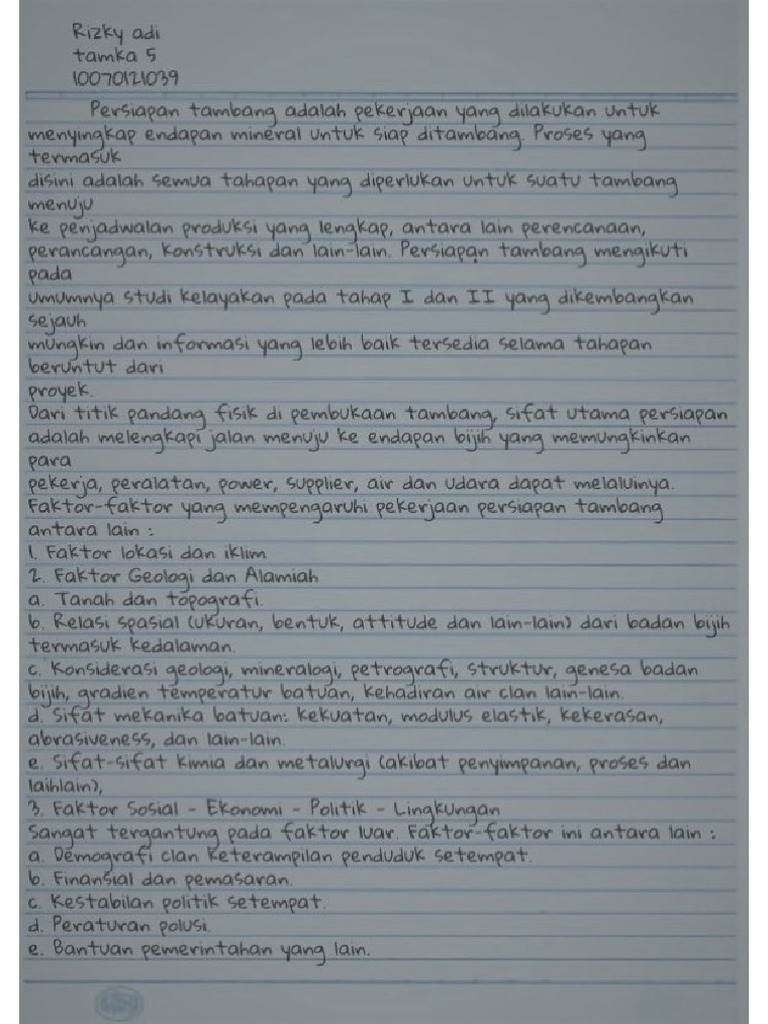 Rizky adi
tamka 5
10070121039
Persiapan tambang adalah pekerjaan yang dilakukan untuk
menyingkap endapan mineral untuk siap ditambang. Proses yang
termasuk
disini adalah semua tahapan yang diperlukan untuk suatu tambang
menuju
ke penjadwalan produksi yang lengkap, antara lain perencanaan,
perancangan, konstruksi dan lain-lain. Persiapan tambang mengikuti
pada
umumnya studi kelayakan pada tahap I dan II yang dikembangkan
sejauh
mungkin dan informasi yang lebih baik tersedia selama tahapan
beruntut dari
proyek.
Dari titik pandang fisik di pembukaan tambang, sifat utama persiapan
adalah melengkapi jalan menuju ke endapan bijih yang memungkinkan
para
pekerja, peralatan, power, supplier, air dan udara dapat melaluinya.
Faktor-faktor yang mempengaruhi pekerjaan persiapan tambang
antara lain :
1. Faktor lokasi dan iklim
2. Faktor Geologi dan Alamiah
a. Tanah dan topografi.
b. Relasi spasial (ukuran, bentuk, attitude dan lain-lain) dari badan bijih
termasuk kedalaman.
c. Konsiderasi geologi, mineralogi, petrografi, struktur, genesa badan
bijih, gradien temperatur batuan, kehadiran air clan lain-lain.
d. Sifat mekanika batuan: kekuatan, modulus elastik, kekerasan,
abrasiveness, dan lain-lain.
e. Sifat-sifat kimia dan metalurgi (akibat penyimpanan, proses dan
laihlain),
3. Faktor Sosial - Ekonomi - Politik - Lingkungan
Sangat tergantung pada faktor luar. Faktor-faktor ini antara lain :
a. Demografi clan keterampilan penduduk setempat.
b. Finansial dan pemasaran.
c. Kestabilan politik setempat.
d. Peraturan polusi.
e. Bantuan pemerintahan yang lain.